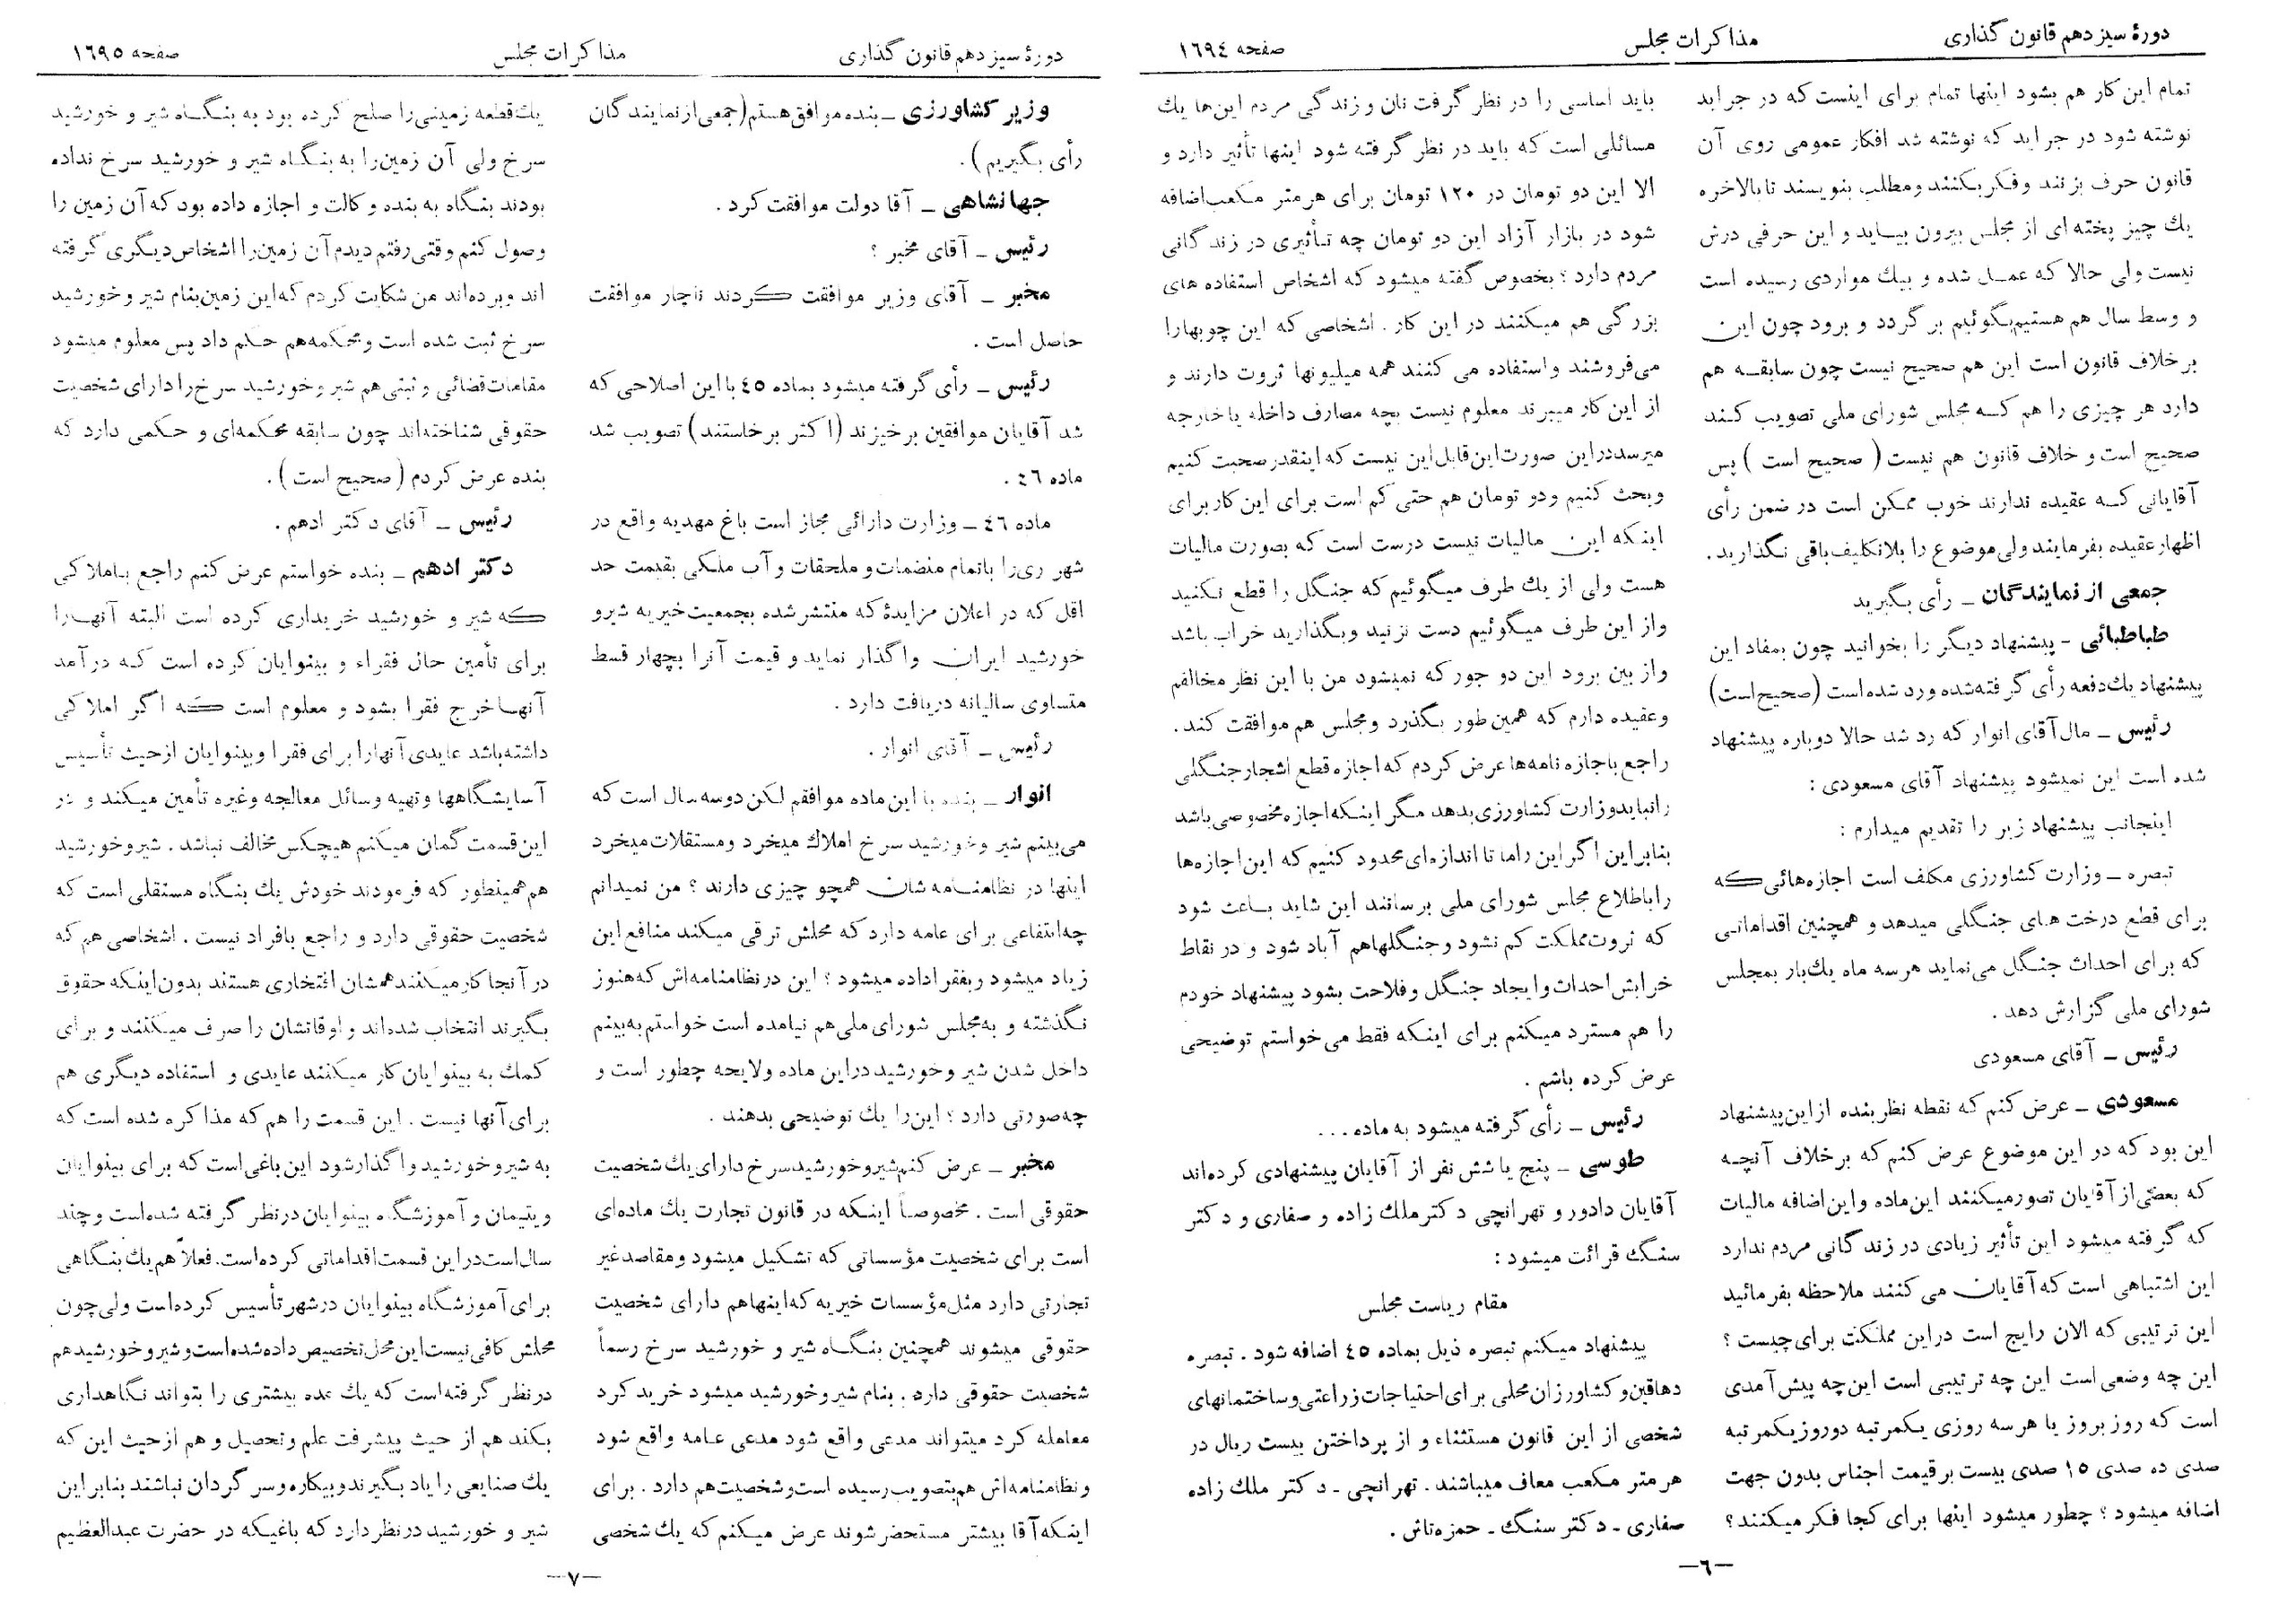 دورهٔ سیزدهم قانون گذاری
مذاکرات مجلس
صفحه ۱٦۹٤
تمام این کار هم بشود اینها تمام برای اینست که در جراید
نوشته شود در جراید که نوشته شد افکار عمومی روی آن
قانون حرف بزنند و فکر بکنند و مطلب بنویسند تا بالاخره
یك چیز پخته ای از مجلس بیرون بیاید و این حرفی درش
نیست ولی حالا که عمل شده و بیك مواردی رسیده است
و وسط سال هم هستیم بگوئیم بر گردد و برود چون این
برخلاف قانون است این هم صحیح نیست چون سابقه هم
دارد هر چیزی را هم که مجلس شورای ملی تصویب کند
صحیح است و خلاف قانون هم نیست ( صحیح است ) پس
آقایانی که عقیده ندارند خوب ممکن است در ضمن رأی
اظهار عقیده بفرمایند ولی موضوع را بلاتکلیف باقی نگذارید.
جمعی از نمایندگان ــ رأی بگیرید
طباطبائی - پیشنهاد دیگر را بخوانید چون بمفاد این
پیشنهاد یك دفعه رأی گرفته شده و رد شده است (صحیح است)
رئیس ــ مال آقای انوار که رد شد حالا دوباره پیشنهاد
شده است این نمیشود پیشنهاد آقای مسعودی :
اینجانب پیشنهاد زیر را تقدیم میدارم :
تبصره ــ وزارت کشاورزی مکلف است اجازه هائی که
برای قطع درخت های جنگلی میدهد و همچنین اقداماتی
که برای احداث جنگل می نماید هر سه ماه یك بار بمجلس
شورای ملی گزارش دهد .
رئیس ــ آقای مسعودی
مسعودی ــ عرض کنم که نقطه نظر بنده از این پیشنهاد
این بود که در این موضوع عرض کنم که برخلاف آنچه
که بعضی از آقایان تصور میکنند این ماده و این اضافه مالیات
که گرفته میشود این تأثیر زیادی در زندگانی مردم ندارد
این اشتباهی است که آقایان می کنند ملاحظه بفرمائید
این ترتیبی که الان رایج است در این مملکت برای چیست ؟
این چه وضعی است این چه ترتیبی است این چه پیش آمدی
است که روز بروز یا هر سه روزی یکمرتبه دو روز یکمرتبه
صدی ده صدی ۱٥ صدی بیست بر قیمت اجناس بدون جهت
اضافه میشود ؟ چطور میشود اینها برای کجا فکر میکنند ؟
باید اساسی را در نظر گرفت نان و زندگی مردم این ها یك
مسائلی است که باید در نظر گرفته شود اینها تأثیر دارد و
الا این دو تومان در ۱۲۰ تومان برای هر متر مکعب اضافه
شود در بازار آزاد این دو تومان چه تأثیری در زندگانی
مردم دارد ؛ بخصوص گفته میشود که اشخاص استفاده های
بزرگی هم میکنند در این کار . اشخاصی که این چوبهارا
می فروشند و استفاده می کنند همه میلیونها ثروت دارند و
از این کار میبرند معلوم نیست بچه مصارف داخله یا خارجه
میرسد در این صورت این قابل این نیست که اینقدر صحبت کنیم
و بحث کنیم و دو تومان هم حتی کم است برای این کار برای
اینکه این مالیات نیست درست است که بصورت مالیات
هست ولی از یك طرف میگوئیم که جنگل را قطع نکنید
و از این طرف میگوئیم دست نزنید و بگذارید خراب باشد
و از بین برود این دو جور که نمیشود من با این نظر مخالفم
و عقیده دارم که همین طور بگذرد و مجلس هم موافقت کند .
راجع باجازه نامه ها عرض کردم که اجازه قطع اشجار جنگلی
را نباید وزارت کشاورزی بدهد مگر اینکه اجازه مخصوصی باشد
بنابر این اگر این راما تا اندازه ای محدود کنیم که این اجازه ها
را باطلاع مجلس شورای ملی برسانند این شاید باعث شود
که ثروت مملکت کم نشود و جنگلها هم آباد شود و در نقاط
خرابش احداث و ایجاد جنگل و فلاحت بشود پیشنهاد خودم
را هم مسترد میکنم برای اینکه فقط می خواستم توضیحی
عرض کرده باشم .
رئیس ــ رأی گرفته میشود به ماده . . .
طوسی ــ پنج یا شش نفر از آقایان پیشنهادی کرده اند
آقایان دادور و تهرانچی دکتر ملك زاده و صفاری و دکتر
سنگ قرائت میشود :
مقام ریاست مجلس
پیشنهاد میکنم تبصره ذیل بماده ٤٥ اضافه شود . تبصره
دهاقین و کشاورزان محلی برای احتیاجات زراعتی و ساختمانهای
شخصی از این قانون مستثناء و از پرداختن بیست ریال در
هر متر مکعب معاف میباشند . تهرانچی ـ دکتر ملك زاده
صفاری ـ دکتر سنگ ـ حمزه تاش .
ــ٦ــ
دورهٔ سیزدهم قانون گذاری
مذاکرات مجلس
صفحه ۱٦۹٥
وزیر کشاورزی ــ بنده موافق هستم (جمعی از نمایندگان
رأی بگیریم ) .
جهانشاهی ــ آقا دولت موافقت کرد .
رئیس ــ آقای مخبر ؟
مخبر ــ آقای وزیر موافقت کردند ناچار موافقت
حاصل است .
رئیس ــ رأی گرفته میشود بماده ٤٥ با این اصلاحی که
شد آقایان موافقین برخیزند (اکثر برخاستند) تصویب شد
ماده ٤٦ .
ماده ٤٦ ــ وزارت دارائی مجاز است باغ مهدیه واقع در
شهر ری را با تمام منضمات و ملحقات و آب ملکی بقیمت حد
اقل که در اعلان مزایدهٔ که منتشر شده بجمعیت خیریه شیرو
خورشید ایران واگذار نماید و قیمت آنرا بچهار قسط
متساوی سالیانه دریافت دارد .
رئیس ــ آقای انوار .
انوار ــ بنده با این ماده موافقم لکن دو سه سال است که
می بینم شیر و خورشید سرخ املاك میخرد و مستقلات میخرد
اینها در نظامنامه شان همچو چیزی دارند ؟ من نمیدانم
چه انتفاعی برای عامه دارد که محلش ترقی میکند منافع این
زیاد میشود و بفقرا داده میشود ؟ این در نظامنامه اش که هنوز
نگذشته و به مجلس شورای ملی هم نیامده است خواستم به بینم
داخل شدن شیر و خورشید در این ماده و لایحه چطور است و
چه صورتی دارد ؛ این را یك توضیحی بدهند .
مخبر ــ عرض کنم شیر و خورشید سرخ دارای یك شخصیت
حقوقی است . مخصوصاً اینکه در قانون تجارت یك ماده ای
است برای شخصیت مؤسساتی که تشکیل میشود و مقاصد غیر
تجارتی دارد مثل مؤسسات خیریه که اینها هم دارای شخصیت
حقوقی میشوند همچنین بنگاه شیر و خورشید سرخ رسماً
شخصیت حقوقی دارد . بنام شیر و خورشید میشود خرید کرد
معامله کرد میتواند مدعی واقع شود مدعی عامه واقع شود
و نظامنامه اش هم بتصویب رسیده است و شخصیت هم دارد . برای
اینکه آقا بیشتر مستحضر شوند عرض میکنم که یك شخصی
یك قطعه زمینی را صلح کرده بود به بنگاه شیر و خورشید
سرخ ولی آن زمین را به بنگاه شیر و خورشید سرخ نداده
بودند بنگاه به بنده وکالت و اجازه داده بود که آن زمین را
وصول کنم وقتی رفتم دیدم آن زمین را اشخاص دیگری گرفته
اند و برده اند من شکایت کردم که این زمین بنام شیر و خورشید
سرخ ثبت شده است و محکمه هم حکم داد پس معلوم میشود
مقامات قضائی و ثبتی هم شیر و خورشید سرخ را دارای شخصیت
حقوقی شناخته اند چون سابقه محکمه ای و حکمی دارد که
بنده عرض کردم (صحیح است) .
رئیس ــ آقای دکتر ادهم .
دکتر ادهم ــ بنده خواستم عرض کنم راجع باملاکی
که شیر و خورشید خریداری کرده است البته آنهارا
برای تأمین حال فقراء و بینوایان کرده است که درآمد
آنها خرج فقرا بشود و معلوم است که اگر املاکی
داشته باشد عایدی آنهارا برای فقرا و بینوایان از حیث تأسیس
آسایشگاهها و تهیه وسائل معالجه وغیره تأمین میکند و در
این قسمت گمان میکنم هیچکس مخالف نباشد . شیر و خورشید
هم همینطور که فرمودند خودش یك بنگاه مستقلی است که
شخصیت حقوقی دارد و راجع بافراد نیست . اشخاصی هم که
در آنجا کار میکنند همشان افتخاری هستند بدون اینکه حقوق
بگیرند انتخاب شده اند و اوقاتشان را صرف میکنند و برای
کمك به بینوایان کار میکنند عایدی و استفاده دیگری هم
برای آنها نیست . این قسمت را هم که مذاکره شده است که
به شیر و خورشید واگذار شود این باغی است که برای بینوایان
و یتیمان و آموزشگاه بینوایان در نظر گرفته شده است و چند
سال است در این قسمت اقداماتی کرده است . فعلاً هم یك بنگاهی
برای آموزشگاه بینوایان در شهر تأسیس کرده است ولی چون
محلش کافی نیست این محل تخصیص داده شده است و شیر و خورشید هم
در نظر گرفته است که یك عده بیشتری را بتواند نگاهداری
بکند هم از حیث پیشرفت علم و تحصیل و هم از حیث این که
یك صنایعی را یاد بگیرند و بیکاره و سرگردان نباشند بنابر این
شیر و خورشید در نظر دارد که باغیکه در حضرت عبدالعظیم
ــ۷ــ